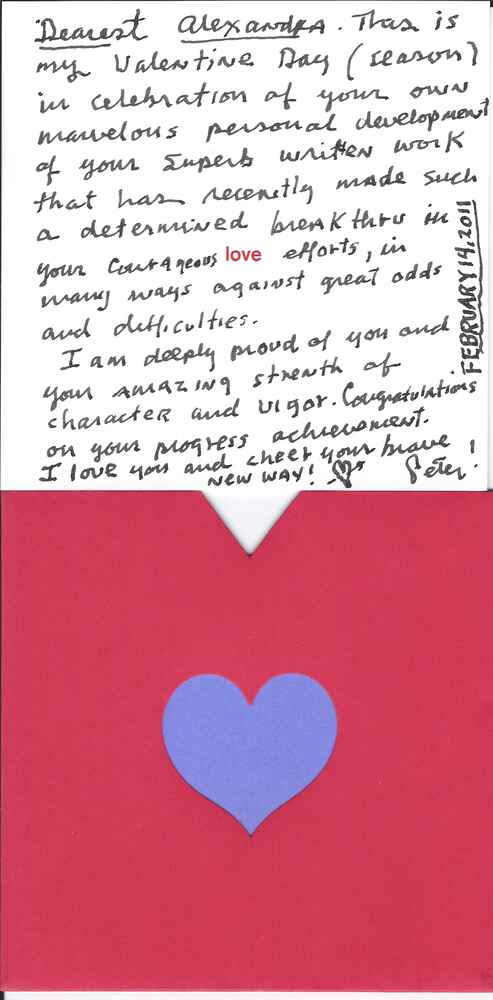 Dearest Alexandra. This is
my Valentine Day (season)
in celebration of your own
marvelous personal development
of your superb written work
that has recently made such
a determined breakthru in
your courageous love efforts, in
many ways against great odds
and difficulties.
I am deeply proud of you and
your amazing strenth of
character and vigor. Congratulations
on your progress achievement.
I love you and cheer your brave
NEW WAY! Peter!
FEBRUARY 14, 2011